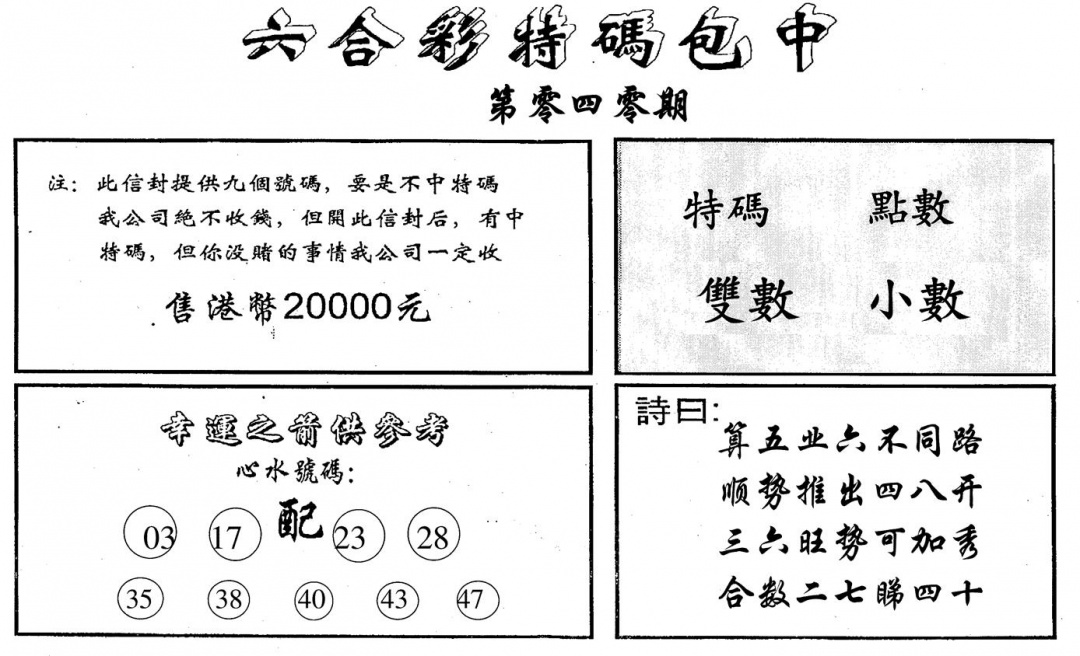 六合彩特碼包中
第零四零期
注：此信封提供九個號碼，要是不中特碼
我公司絕不收錢，但開此信封后，有中
特碼，但你没賭的事情我公司一定收
售港幣20000元
特碼 點數
雙數 小數
幸運之箭供參考
心水號碼：
配
03 17 23 28
35 38 40 43 47
詩曰：
算五业六不同路
顺势推出四八开
三六旺势可加秀
合数二七睇四十